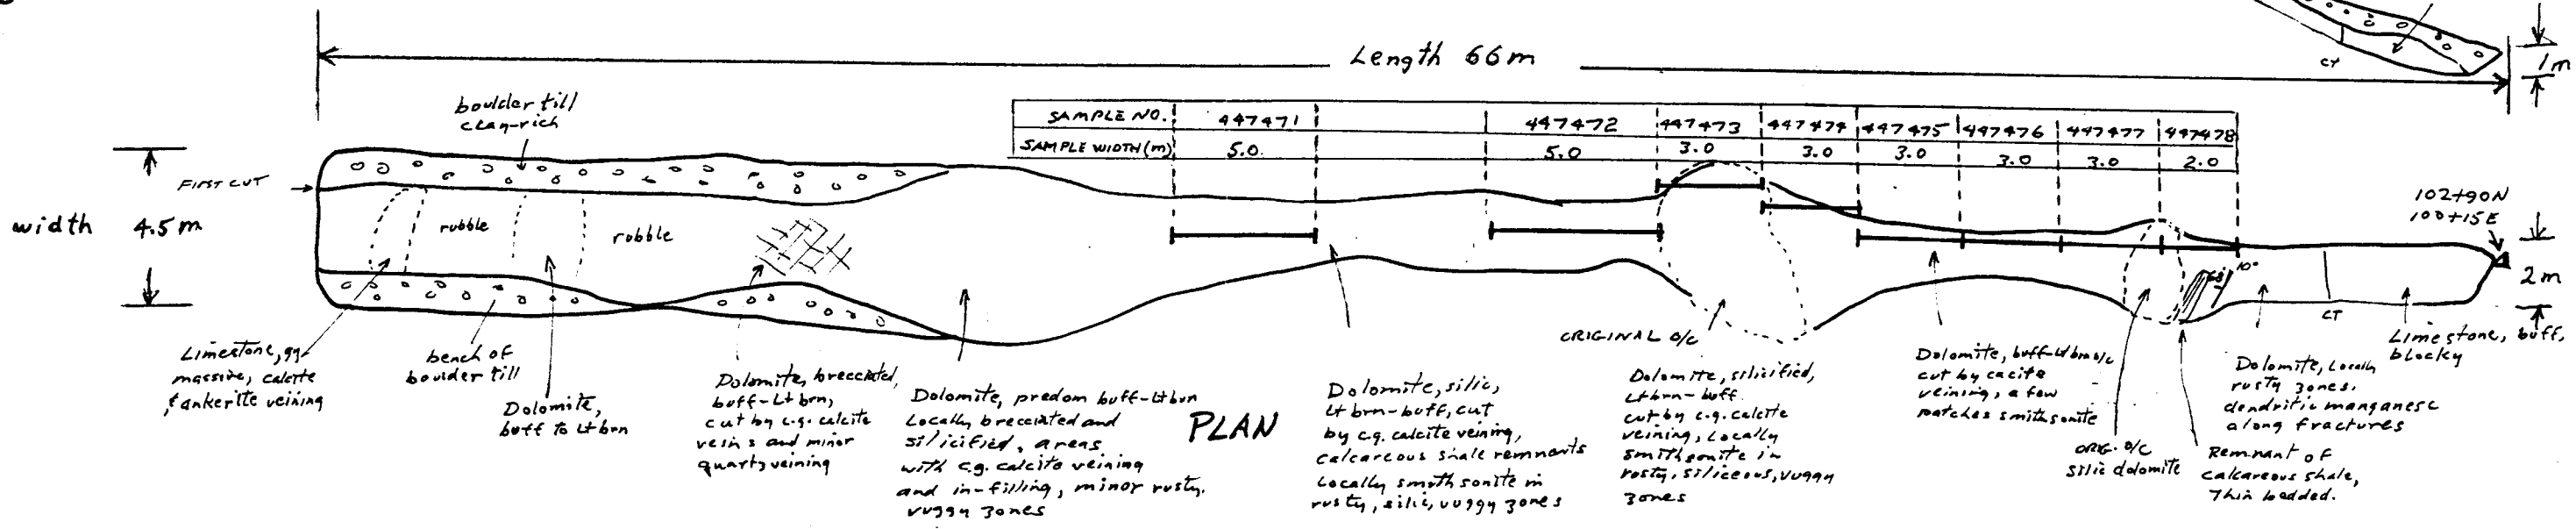 Length 66m
CT
1m
boulder till
clay-rich
SAMPLE NO. 447471 447472 447473 447474 447475 447476 447477 447478
SAMPLE WIDTH (m) 5.0 5.0 3.0 3.0 3.0 3.0 3.0 2.0
FIRST CUT
width 4.5m
rubble
rubble
102+90N
100+15E
2m
10°
CT
Limestone, gy-
massive, calcite
& ankerite veining
bench of
boulder till
Dolomite,
buff to Lt brn
Dolomite, brecciated,
buff-Lt brn,
cut by c.g. calcite
veins and minor
quartz veining
Dolomite, predom buff-Lt brn
Locally brecciated and
silicified, areas
with c.g. calcite veining
and in-filling, minor rusty,
vuggy zones
PLAN
Dolomite, silic,
Lt brn-buff, cut
by c.g. calcite veining,
calcareous shale remnants
Locally smithsonite in
rusty, silic, vuggy zones
ORIGINAL O/C
Dolomite, silicified,
Lt brn-buff.
cut by c.g. calcite
veining, Locally
smithsonite in
rusty, siliceous, vuggy
zones
Dolomite, buff-Lt brn o/c
cut by cacite
veining, a few
patches smithsonite
ORIG. O/C
silic dolomite
Remnant of
calcareous shale,
Thin bedded.
Dolomite, Locally
rusty zones.
dendritic manganese
along fractures
Limestone, buff,
blocky